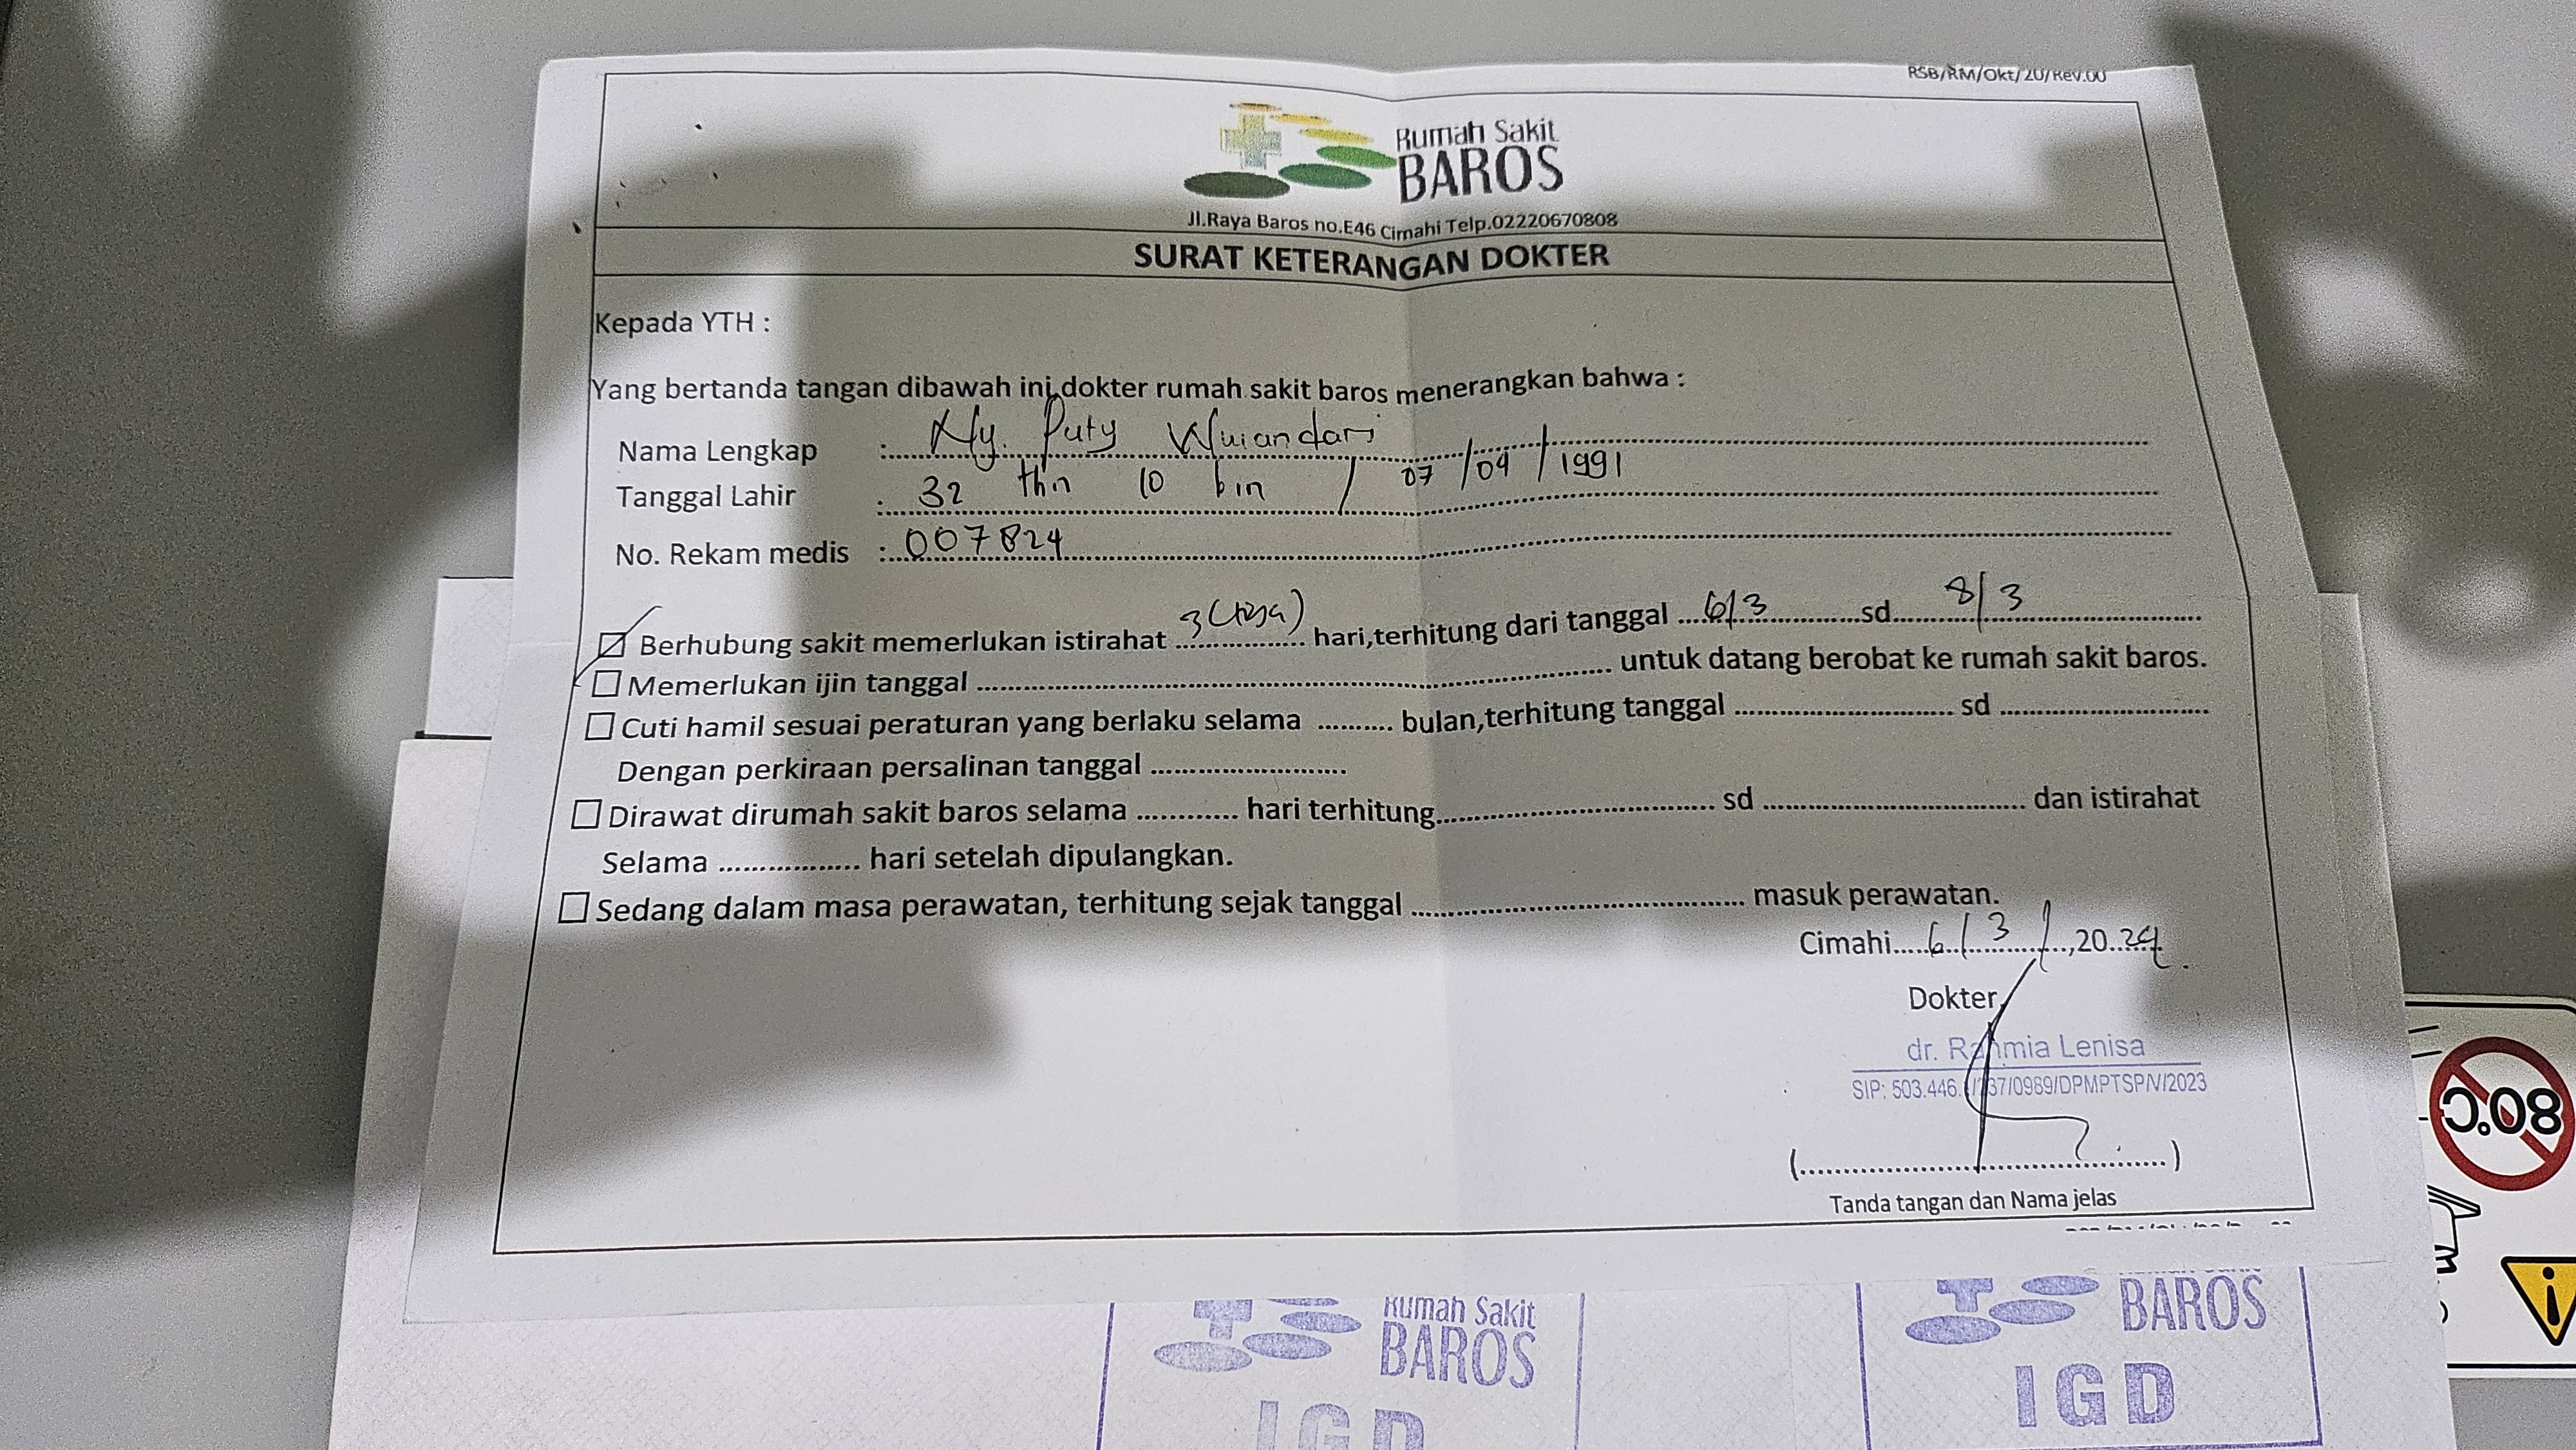 RSB/RM/Okt/20/Rev.00
Rumah Sakit
BAROS
Jl.Raya Baros no.E46 Cimahi Telp.02220670808
SURAT KETERANGAN DOKTER
Kepada YTH :
Yang bertanda tangan dibawah ini,dokter rumah sakit baros menerangkan bahwa :
Nama Lengkap : Ny. Puty Wulandari 07/04/1991
Tanggal Lahir : 32 thn 10 bln /
No. Rekam medis : 007824
Berhubung sakit memerlukan istirahat 3 (tiga) hari,terhitung dari tanggal 6/3 sd 8/3
Memerlukan ijin tanggal untuk datang berobat ke rumah sakit baros.
Cuti hamil sesuai peraturan yang berlaku selama bulan,terhitung tanggal sd
Dengan perkiraan persalinan tanggal
Dirawat dirumah sakit baros selama hari terhitung sd dan istirahat
Selama hari setelah dipulangkan.
Sedang dalam masa perawatan, terhitung sejak tanggal masuk perawatan.
Cimahi 6/3/,2024.
Dokter
dr. Rahmia Lenisa
SIP: 503.446. /0989/DPMPTSP/V/2023
( )
Tanda tangan dan Nama jelas
Rumah Sakit
BAROS
IGD
BAROS
IGD
80°C